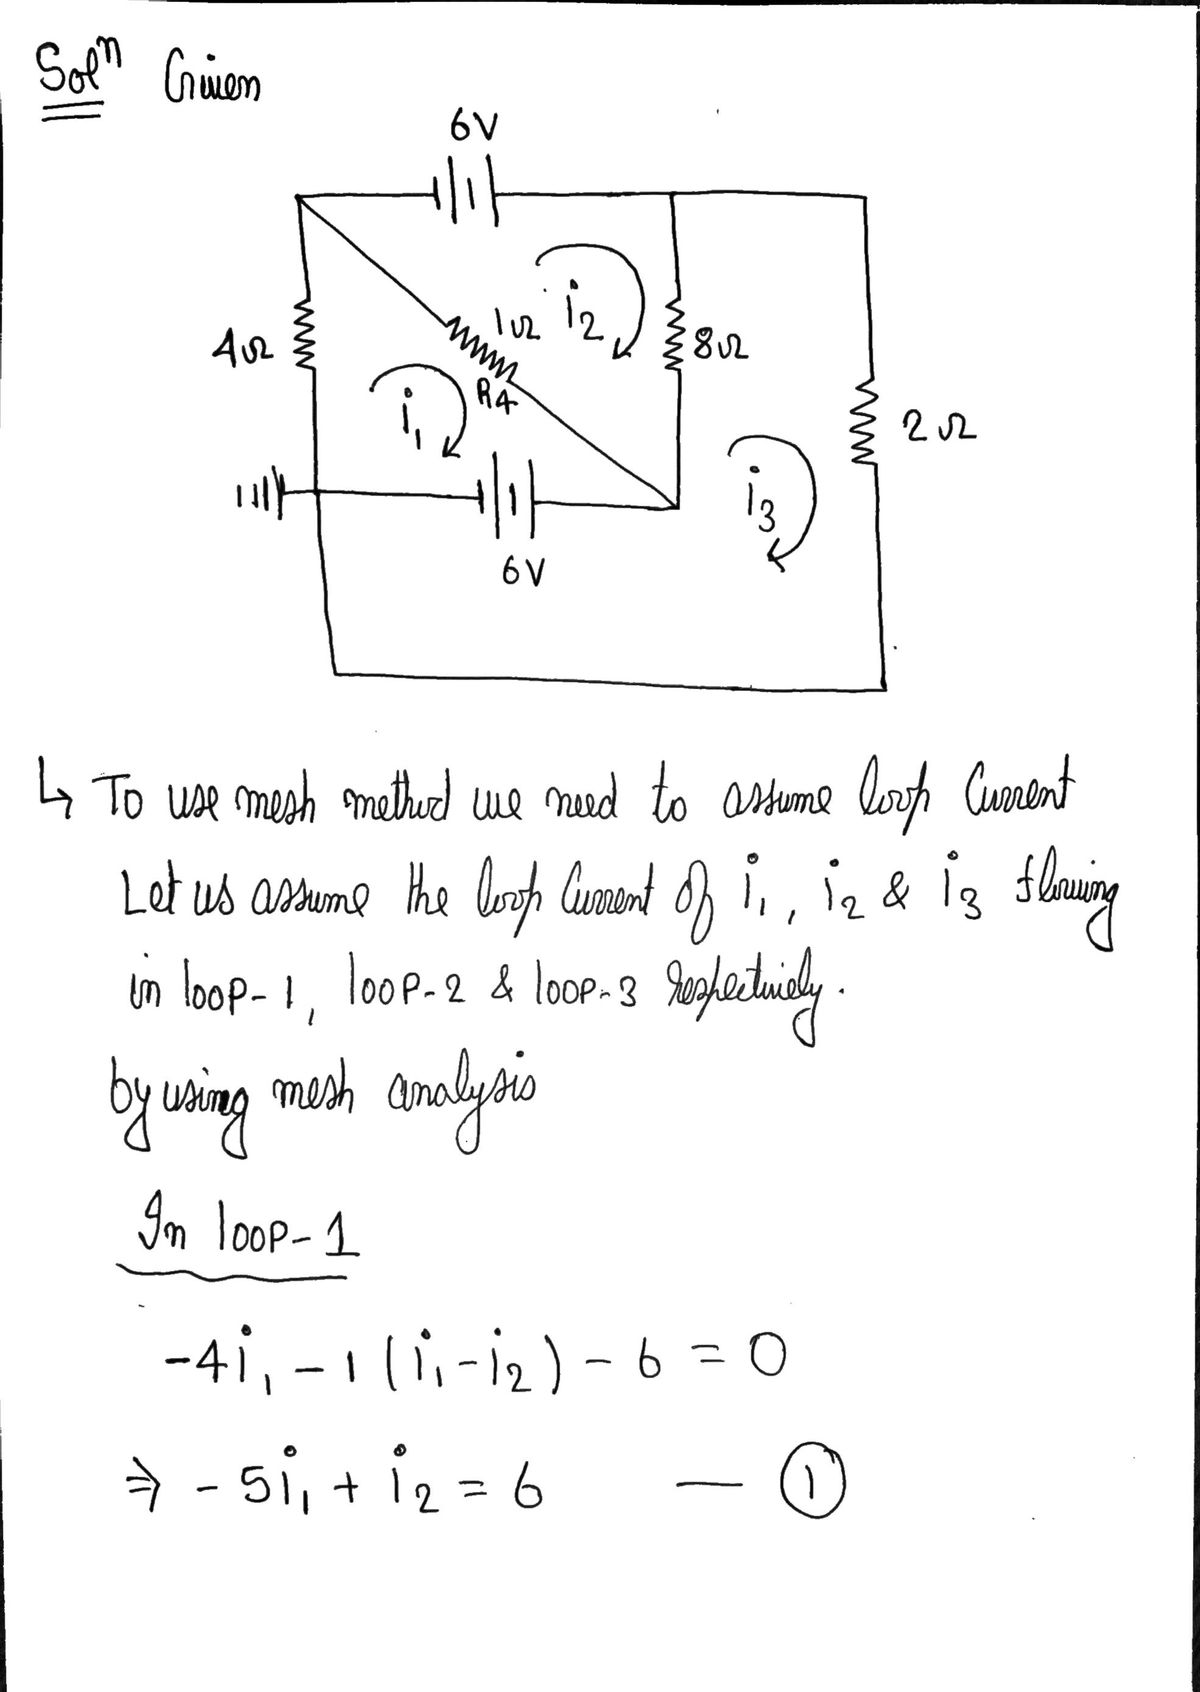 Solⁿ Given
6V
4Ω
1Ω
i₂
8Ω
R4
i₁
2Ω
i₃
6V
↳ To use mesh method we need to assume loop Current
Let us assume the loop Current of i₁, i₂ & i₃ flowing
in loop-1, loop-2 & loop-3 respectively.
by using mesh analysis
In loop-1
-4i₁ - 1(i₁-i₂) - 6 = 0
⇒ -5i₁ + i₂ = 6 — ①